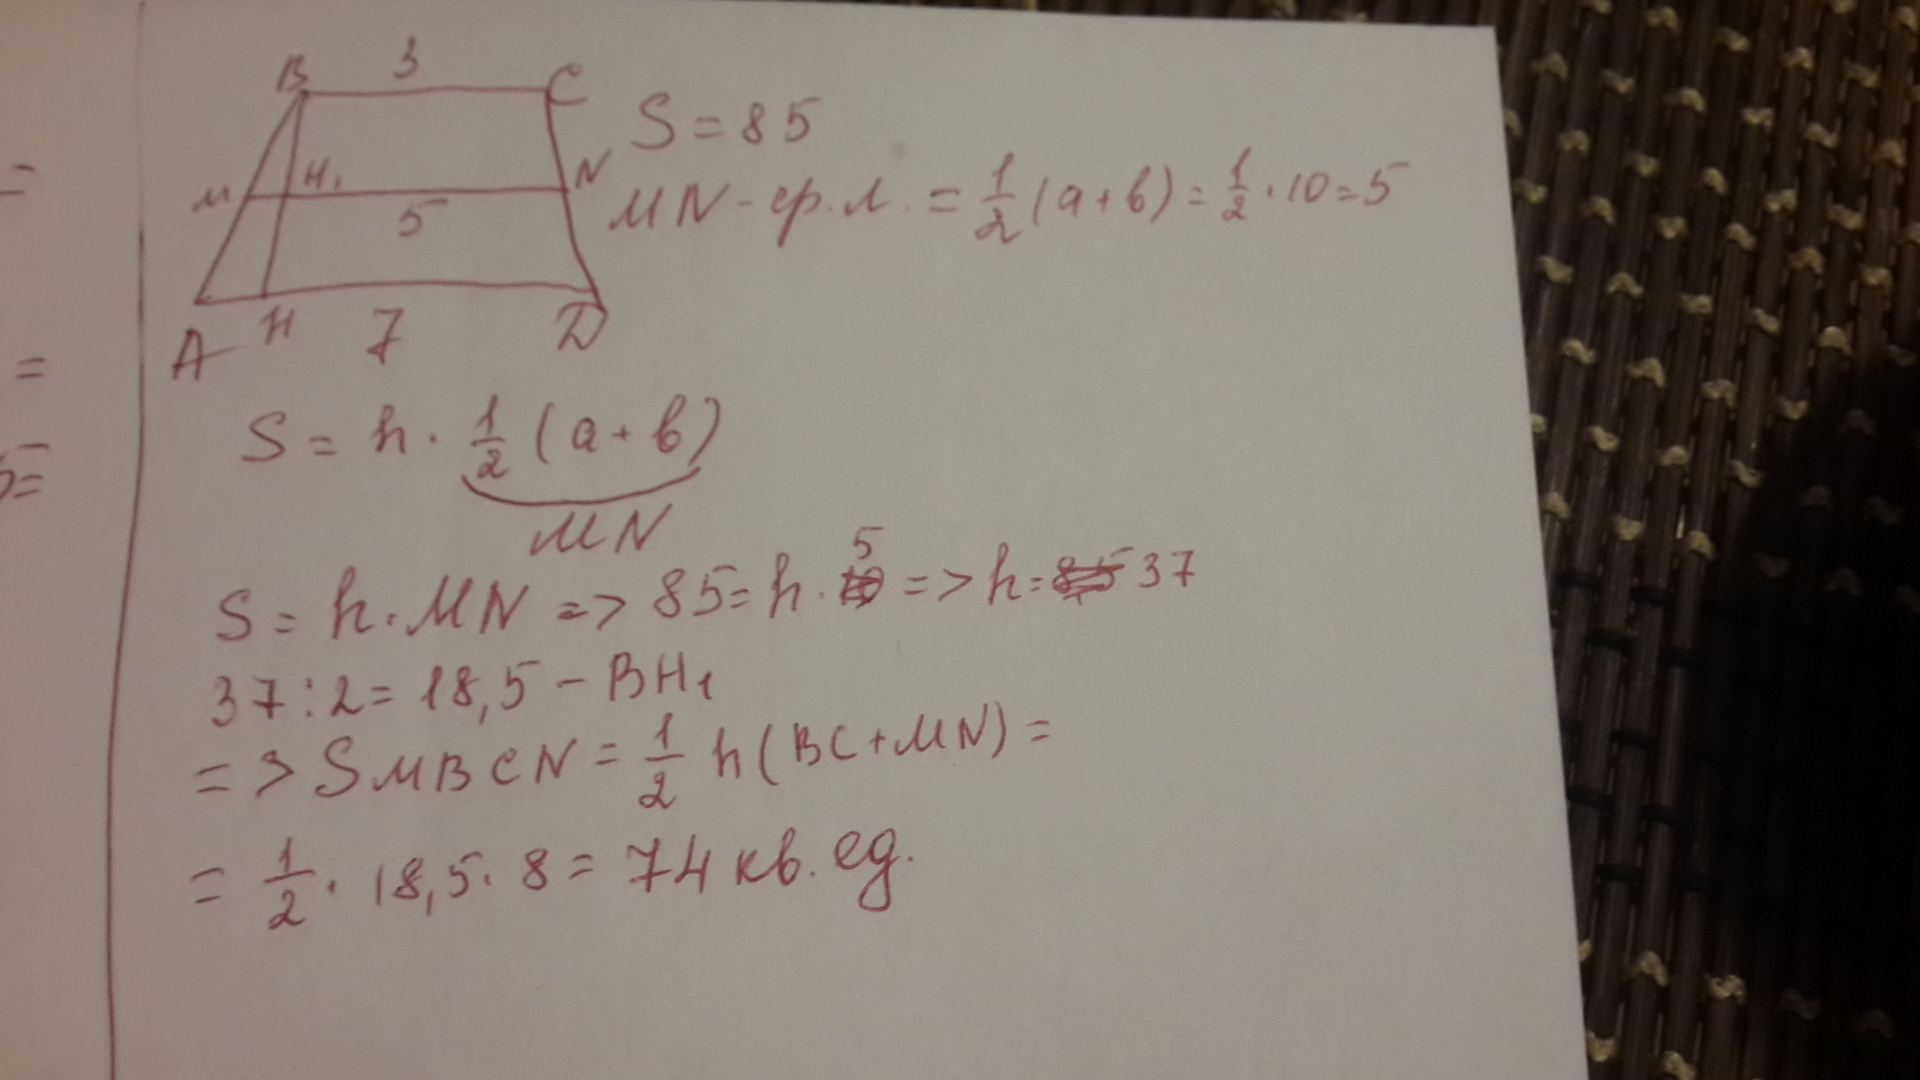 B 3 C
S = 85
M H₁ N
5
MN - ср. л. = 1/2 (a + b) = 1/2 · 10 = 5
A H 7 D
S = h · 1/2 (a + b)
MN
5
S = h · MN => 85 = h · => h = 37
37 : 2 = 18,5 - BH₁
=> S MBCN = 1/2 h (BC + MN) =
= 1/2 · 18,5 · 8 = 74 кв. ед.
=
=
5=